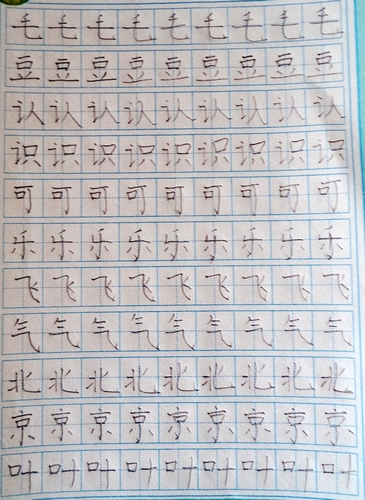 毛毛毛毛毛毛毛毛毛
豆豆豆豆豆豆豆豆豆
认认认认认认认认认
识识识识识识识识识
可可可可可可可可可
乐乐乐乐乐乐乐乐乐
飞飞飞飞飞飞飞飞飞
气气气气气气气气气
北北北北北北北北北
京京京京京京京京京
叶叶叶叶叶叶叶叶叶